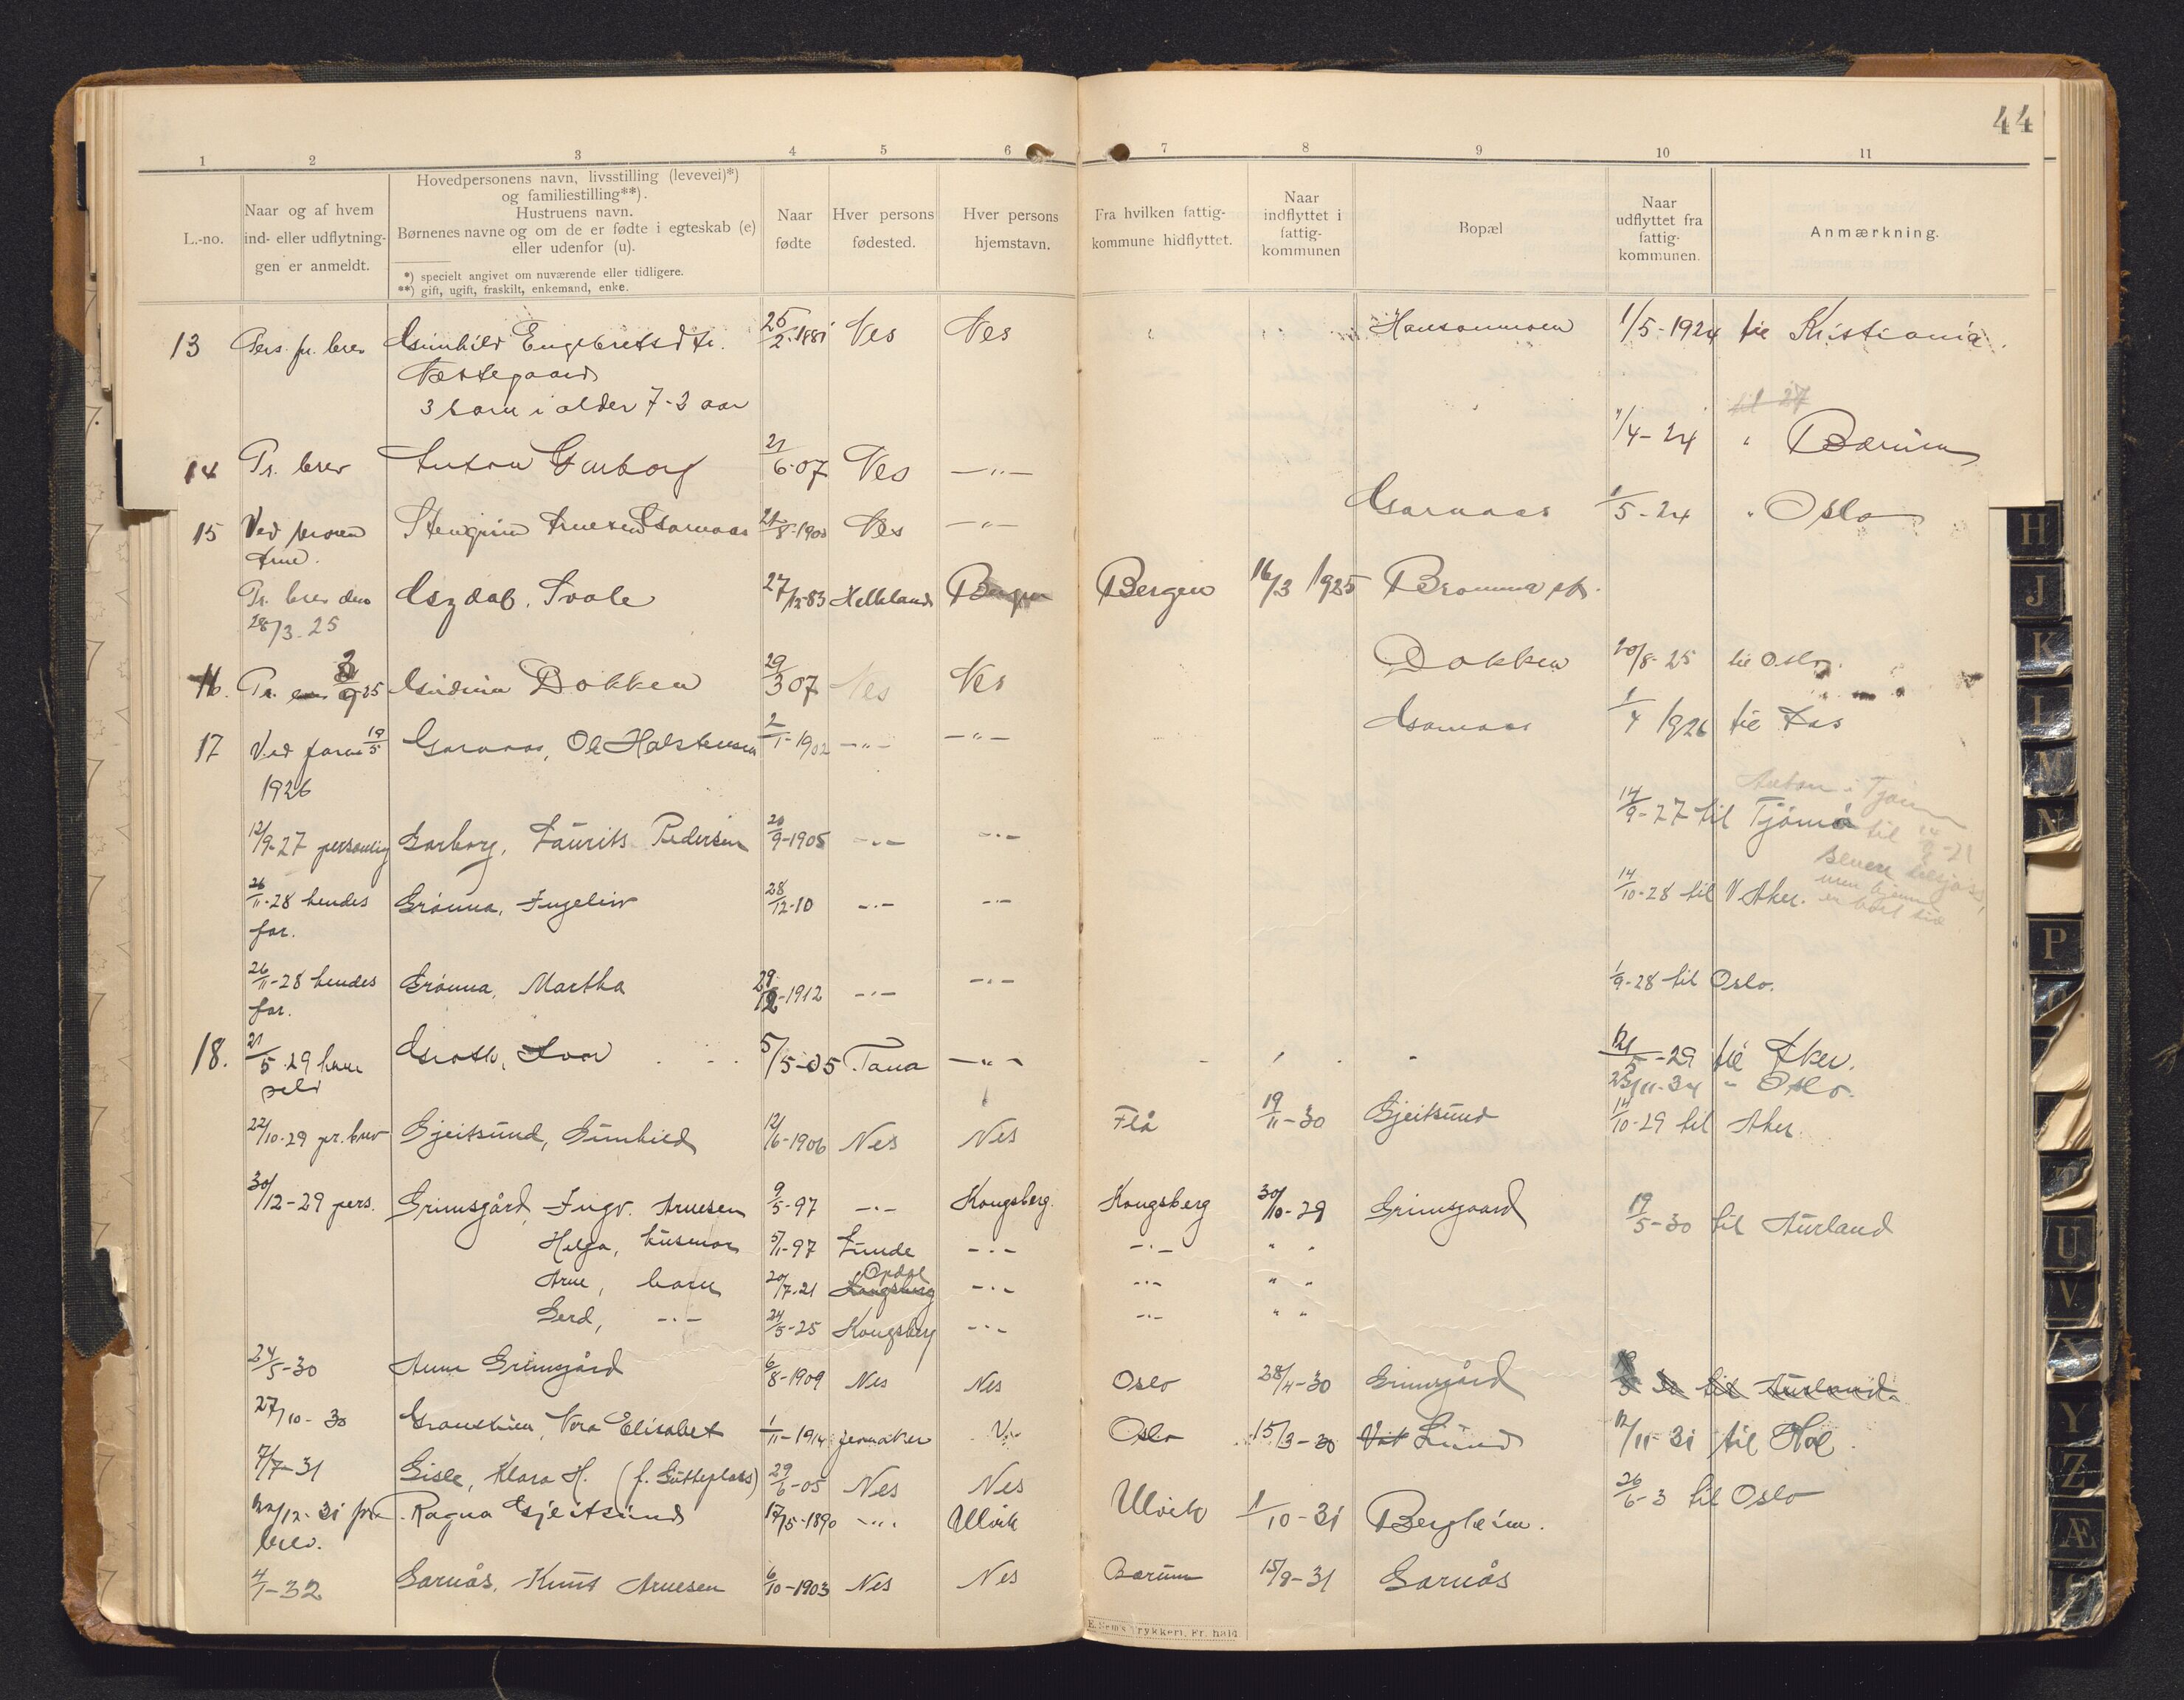 44
1 2 3 4 5 6 7 8 9 10 11
L.-no.
Naar og af hvem
ind- eller udflytnin-
gen er anmeldt.
Hovedpersonens navn, livsstilling (levevei)*)
og familiestilling**).
Hustruens navn.
Børnenes navne og om de er fødte i egteskab (e)
eller udenfor (u).
*) specielt angivet om nuværende eller tidligere.
**) gift, ugift, fraskilt, enkemand, enke.
Naar
fødte
Hver persons
fødested.
Hver persons
hjemstavn.
Fra hvilken fattig-
kommune hidflyttet.
Naar
indflyttet i
fattig-
kommunen
Bopæl
Naar
udflyttet fra
fattig-
kommunen.
Anmærkning.
13 Pers. pr. brev Gunhild Engebretsdtr. 25/2-1881 Nes Nes 1/5-1924 til Kristiania.
Næstegaard
3 barn i alder 7-2 aar
til 27
14 Pr. brev Anton Garborg 21/6-07 Nes —"— 1/4-24 " Bærum
15 Ved broren Stengrim Arnesen Garnaas 21/8-1900 Nes —"— Garnaas 1/5-24 " Oslo
Arne.
Pr. brev den 28/3-25 Gszdal, Svale 27/12-83 Helleland Bergen Bergen 16/3 1925 Bromma st.
16. Pr. 2/9 25 Gudrun Dokken 29/3 07 Nes Nes Dokken 20/8-25 til Oslo.
17 Ved faren 19/5 Garnaas, Ole Halstensen 2/1-1902 —"— —"— Garnaas 1/4 1926 til Aas
1926
Anton i Tjøm
12/9-27 personlig Garborg, Laurits Pedersen 20/9-1905 —"— —"— 14/9-27 til Tjömö til 14/9-21
senere tilsjøss,
men hjemme
en kort tid
26/11-28 hendes Grönna, Ingeliv 28/12-10 —"— —"— 14/10-28 til V. Aker.
far.
26/11-28 hendes Grönna, Martha 29/12-1912 —"— —"— 1/9-28 til Oslo.
far.
18. 21/5-29 ham Groth, Ivar 5/5-05 Tana —"— 12/5-29 til Aker.
selv 23/11-34 " Oslo.
22/10-29 pr. brev Gjeitsund, Gunhild 12/6-1906 Nes Nes Flå 19/11-30 Gjeitsund 14/10-29 til Aker.
30/12-29 pers. Grimsgård, Ingv. Arnesen 9/5-97 —"— Kongsberg. Kongsberg 30/10-29 Grimsgaard 19/5-30 til Aurland
Helga, husmor 5/1-97 Lunde —"— —"— " "
Arne, barn 20/7-21 Kongsberg Opdal —"— —"— " "
Gerd, —"— 24/5-25 Kongsberg —"— —"— " "
24/5-30 Anne Grimsgård 6/8-1909 Nes Nes Oslo 28/4-30 Grimsgård 19/5 30 til Aurland
27/10-30 Granheim, Nora Elisabet 1/11-1914 Jevnaker Oslo 15/3-30 Lund 12/11-31 til Hol.
7/7-31 Gisle, Klara H. (f. Gutteplass) 29/6-05 Nes Nes 26/6-3 til Oslo
12/12-31 pr. Ragna Gjeitsund 17/5-1890 —"— Ulvik Ulvik 1/10-31 Bergheim.
brev.
4/1-32 Garnås, Knut Arnesen 6/10-1903 Nes Nes Bærum 15/9-31 Garnås
E. Sem's trykkeri, Fr. hald.
H
J
K
L
M
N
P
U
V
X
Y
Z
Æ